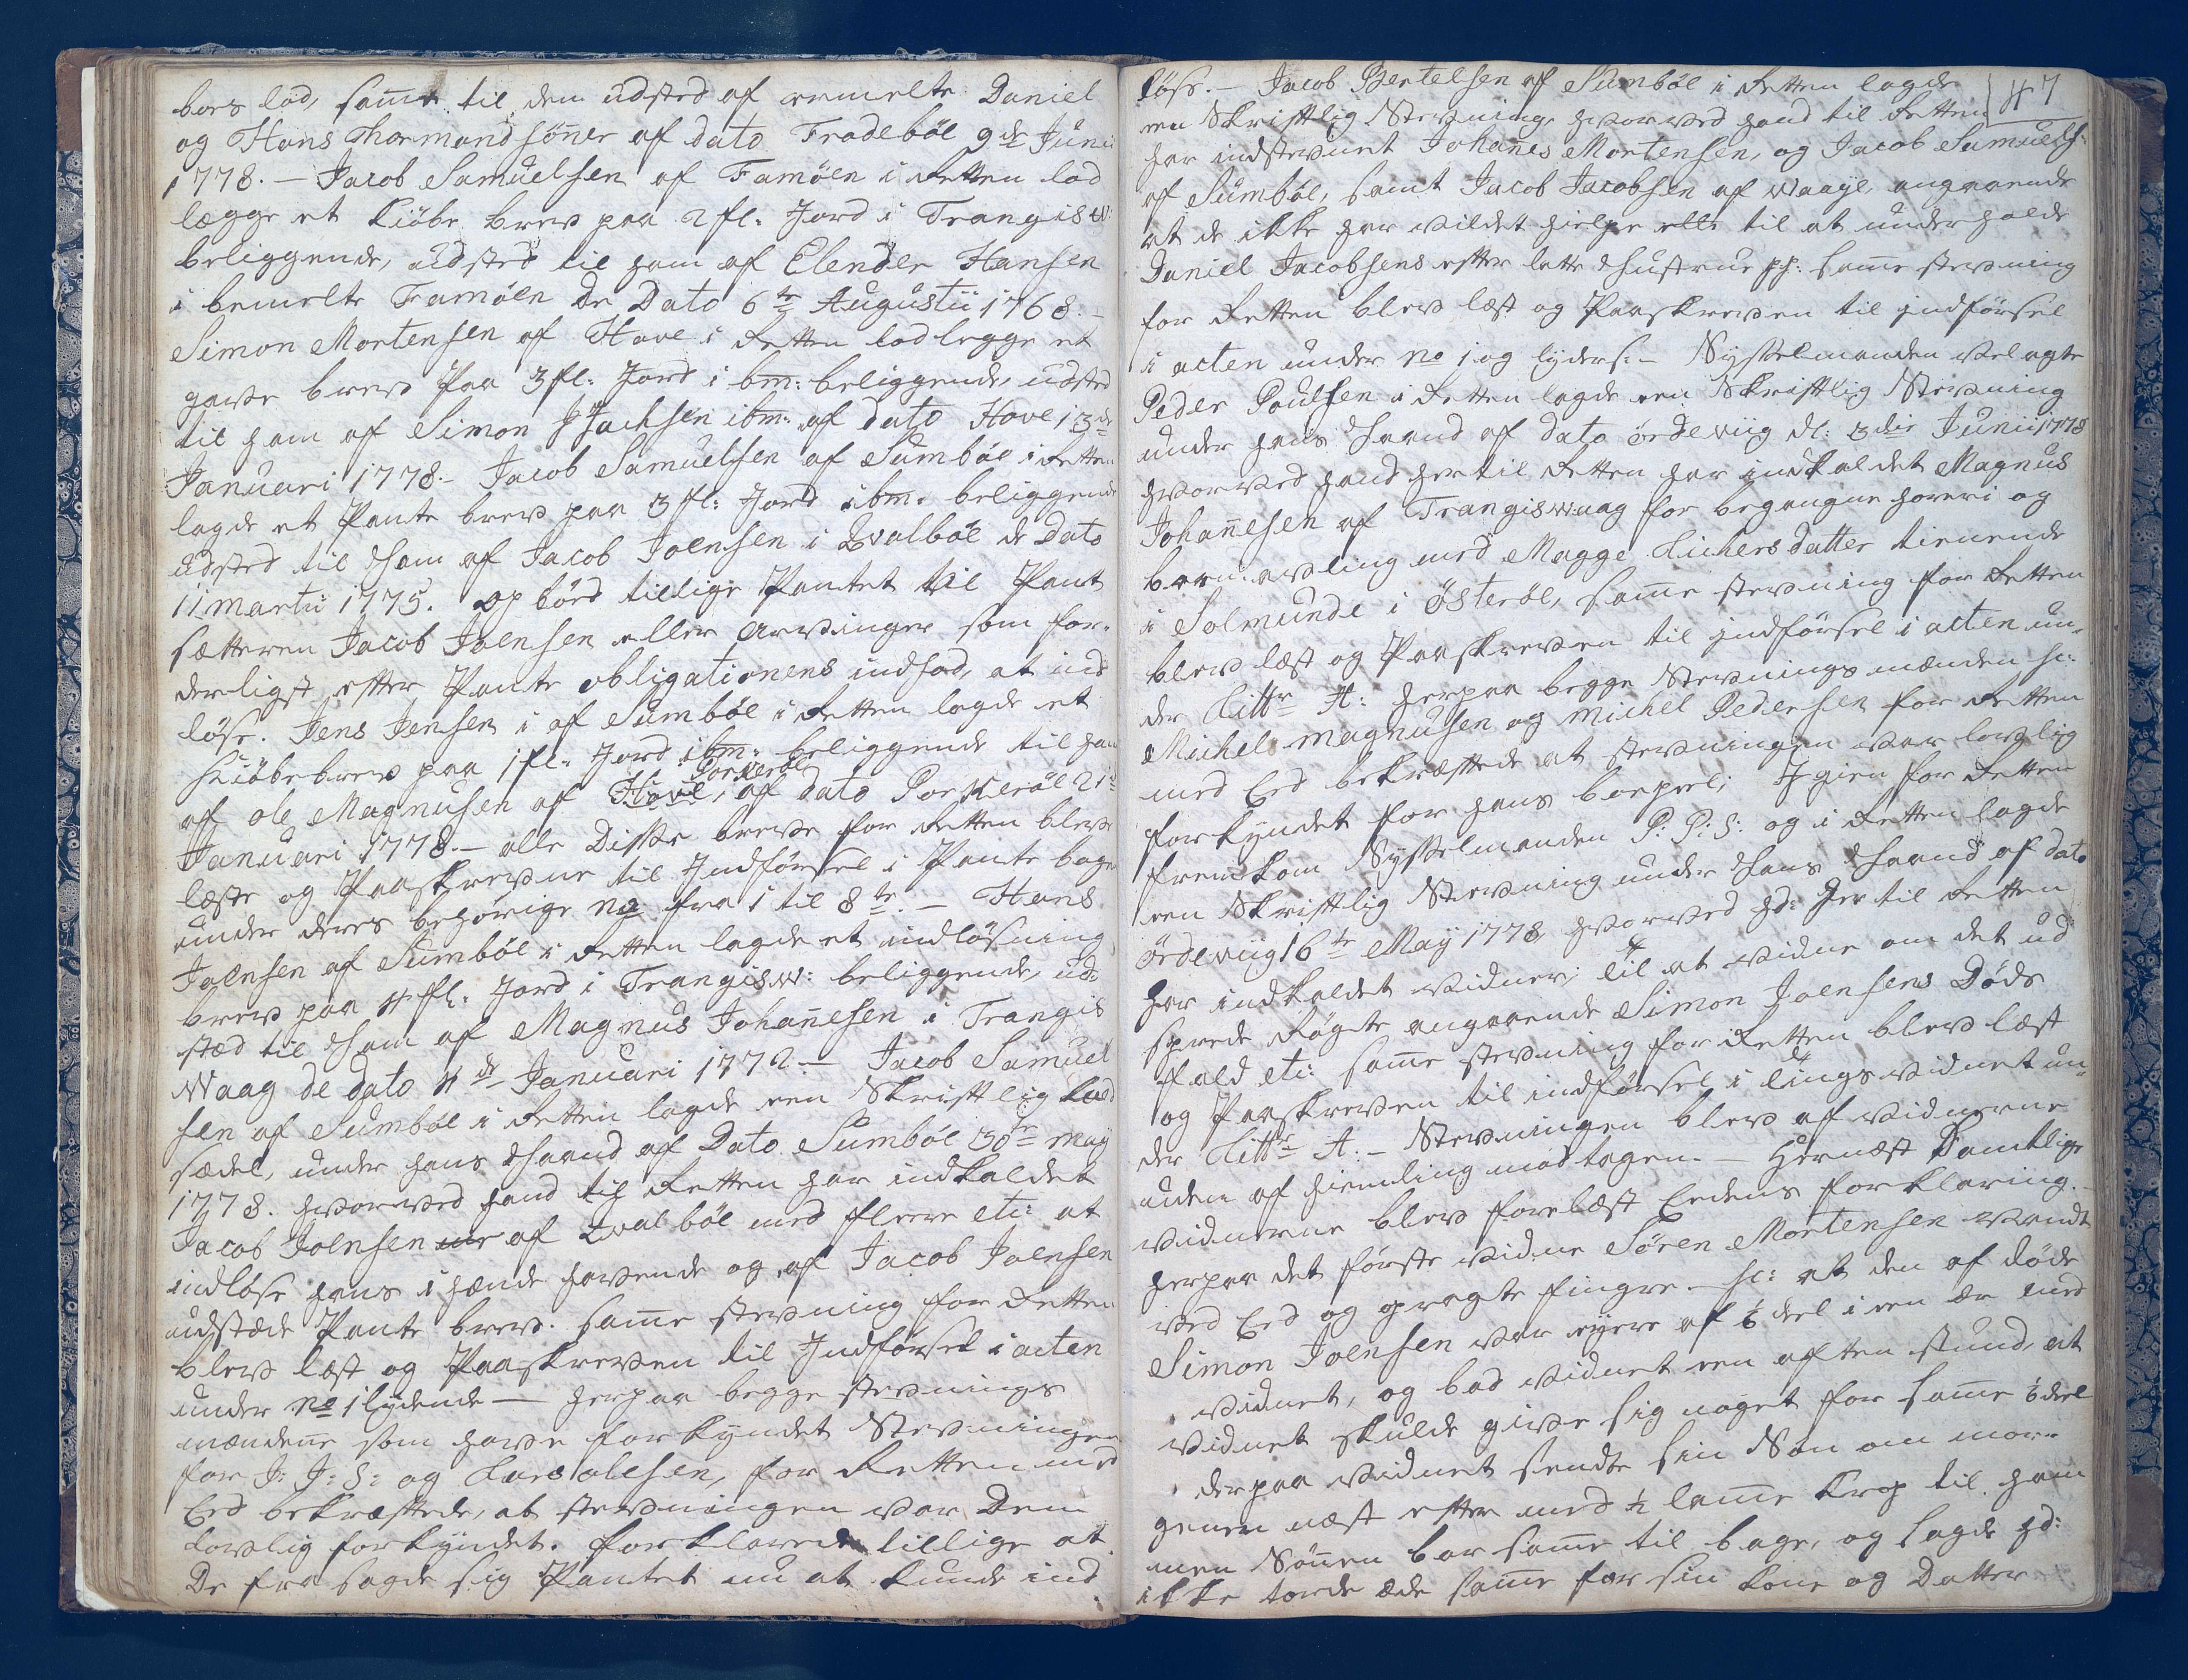 bors lod, samt til dem udsted af ermelte Daniel
og Hans Thormondsönner af dato Frodeböe 9de Junii
1778. — Jacob Samuelsen af Famöen i Retten lod
lægge et Kiöbe brev paa 2 fl: Jord i Trangisw:
beliggende, udsted til ham af Elender Hansen
i bemelte Famöen De Dato 6te Augustii 1768. —
Simon Mortensen af Hove i Retten lod legge et
gave brev Paa 3 fl: Jord i bm: beliggende, udsted
til ham af Simon Jsachsen ibm: af dato Hove 13de
Januari 1778. — Jacob Samuelsen af Sumböe i Retten
lagde et Pante brev paa 3 fl: Jord ibm: beliggende
udsted til Ham af Jacob Joensen i Qvalböe de Dato
11 Martii 1775. op böd tillige Pantet til Pant
sætteren Jacob Joensen eller Arvinger som for-
derligst efter Pante obligationens indhod, at ind
löse. Jens Jensen i af Sumböe i Retten lagde et
Skiöbebrev paa 1 fl: Jord ibm: beliggende til ham
af Ole Magnusen af Hove, Porkeröe af dato Porkeröe 21de
Januari 1778. — alle Disse breve for Retten blev
læste og Paaskrevne til Jndförsel i Pante boge
under deres behörige No fra 1 til 8te. — Hans
Joensen af Sumböe i Retten lagde et indlösning
brev paa 4 fl: Jord i Trangisw: beliggende, ud-
stæd til Ham af Magnus Johannesen i Trangis
Waag de dato 4de Januari 1772. — Jacob Samuel
sen af Sumböe i Retten lagde een Skriftlig kald
sædel, under hans Haand af Dato Sumböe 30te May
1778. hvorved hand til Retten har indkaldet
Jacob Joensen af Qvalböe med flere etc: at
indlöse hans i hænde havende og af Jacob Joensen
udstæde Pante brev. samme stevning for Retten
blev læst og Paaskreven til Jndförsel i acten
under No 1 lydende — herpaa begge stevnings
mændene som have forkyndet Stevningen
for J: J: S: og Lars Olesen, for Retten med
Eed bekræftede, at stevningen var Dem
lovlig forkyndet. forklarede tillige at
De fra sagde sig Pantet nu at kunde ind
47
löse. — Jacob Bertelsen af Sumböe i Retten lagde
een Skriftlig Stevning, hvorved hand til Retten
har indstevnet Johannes Mortensen, og Jacob Samuels:
af Sumböe, samt Jacob Jacobsen af Waaye, angaaende
at de ikke har vildet hielpe till til at underholde
Daniel Jacobsens efter latte Hustrue pp: samme stevning
for Retten blev læst og Paaskreven til jndförsel
i acten under No 1 og lyder s: — Sysselmanden Velagte
Peder Poulsen i Retten lagde een Skriftlig Stevning
under hans Haand af dato Ördeviig d: 3die Junii 1778
hvorved hand hertil Retten har indkaldet Magnus
Johannesen af Trangiswaag for begangne horeri og
barn avling med Magge Lickers datter tienende
i Solmunde i Österöe, samme stevning for Retten
blev læst og Paaskreven til jndförsel i acten un-
der Littr A: herpaa begge Stevnings mænden sc:
Michel Magnusen og Michel Pedersen for Retten
med Eed bekræftede at stevningen var lovlig
forkyndet for hans boepæl; Jgien for Retten
fremkom Sysselmanden P: P: S: og i Retten lagde
een Skriftlig Stevning under Hans Haand af dato
Ördeviig 16te May 1778 hvorved hd: her til Retten
har indkaldet vidner, til at vidne om det ud
spræde Rögte angaaende Simon Joensens Döds
fald etc: samme stevning for Retten blev læst
og Paaskreven til indförsel i tings vidnet un-
der Littr A: — Stevningen blev af vidnerne
uden af hiemling modtagen. — Hernæst Samtlige
vidnerne blev forelæst Eedens forklaring. —
herpaa det förste vidne Sören Mortensen vandt
ved Eed og opragte fingre. — sc: at den af döde
Simon Joensen var eyere af 1/6 deel i een ær med
vidnet, og bad vidnet een aften stund, at
vidnet skulde give sig noget for samme 1/6 deel
derpaa vidnet sendte sin Sön om mor-
genen næst efter med 1/2 lamme krop til ham
men Sönnen bar samme til bage, og sagde hd:
ikke torde æde samme for sin kone og Datter